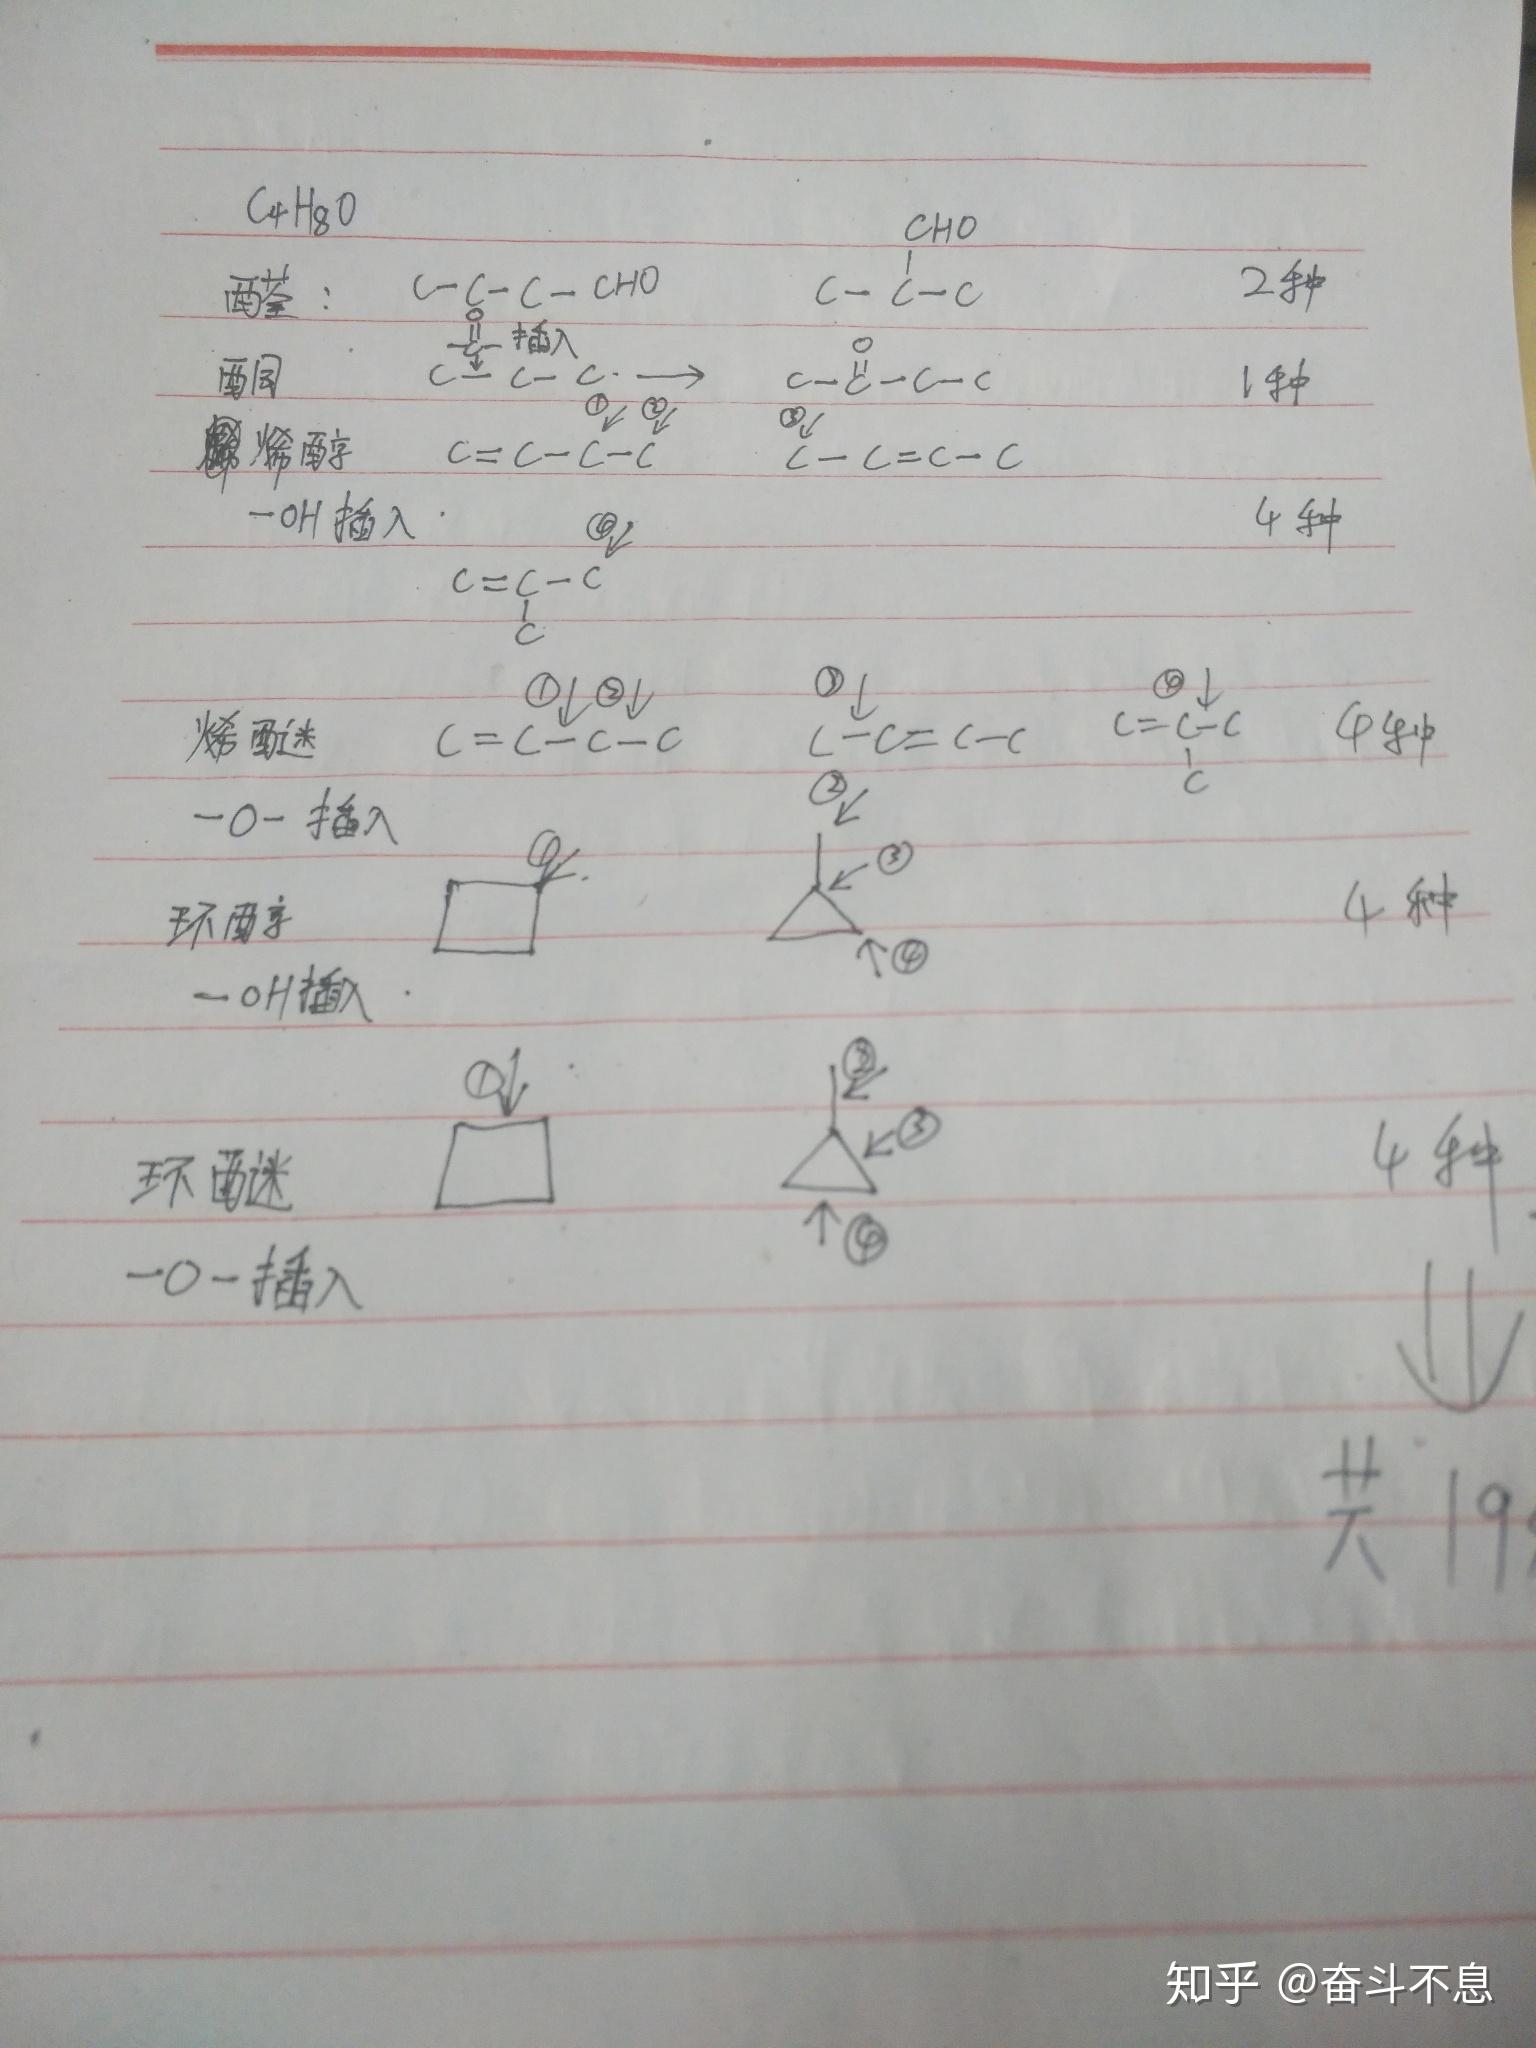 C4H8O
CHO
醛: C-C-C-CHO C-C-C 2种
O
-C- 插入 O
酮 C-C-C → C-C-C-C 1种
① ② ③
烯醇 C=C-C-C C-C=C-C
-OH插入 4种
④
C=C-C
C
① ② ③ ④
烯醚 C=C-C-C C-C=C-C C=C-C 4种
C
-O-插入 ②
① ③
环醇 4种
④
-OH插入
① ②
③
环醚 4种
④
-O-插入
共19
知乎 @奋斗不息